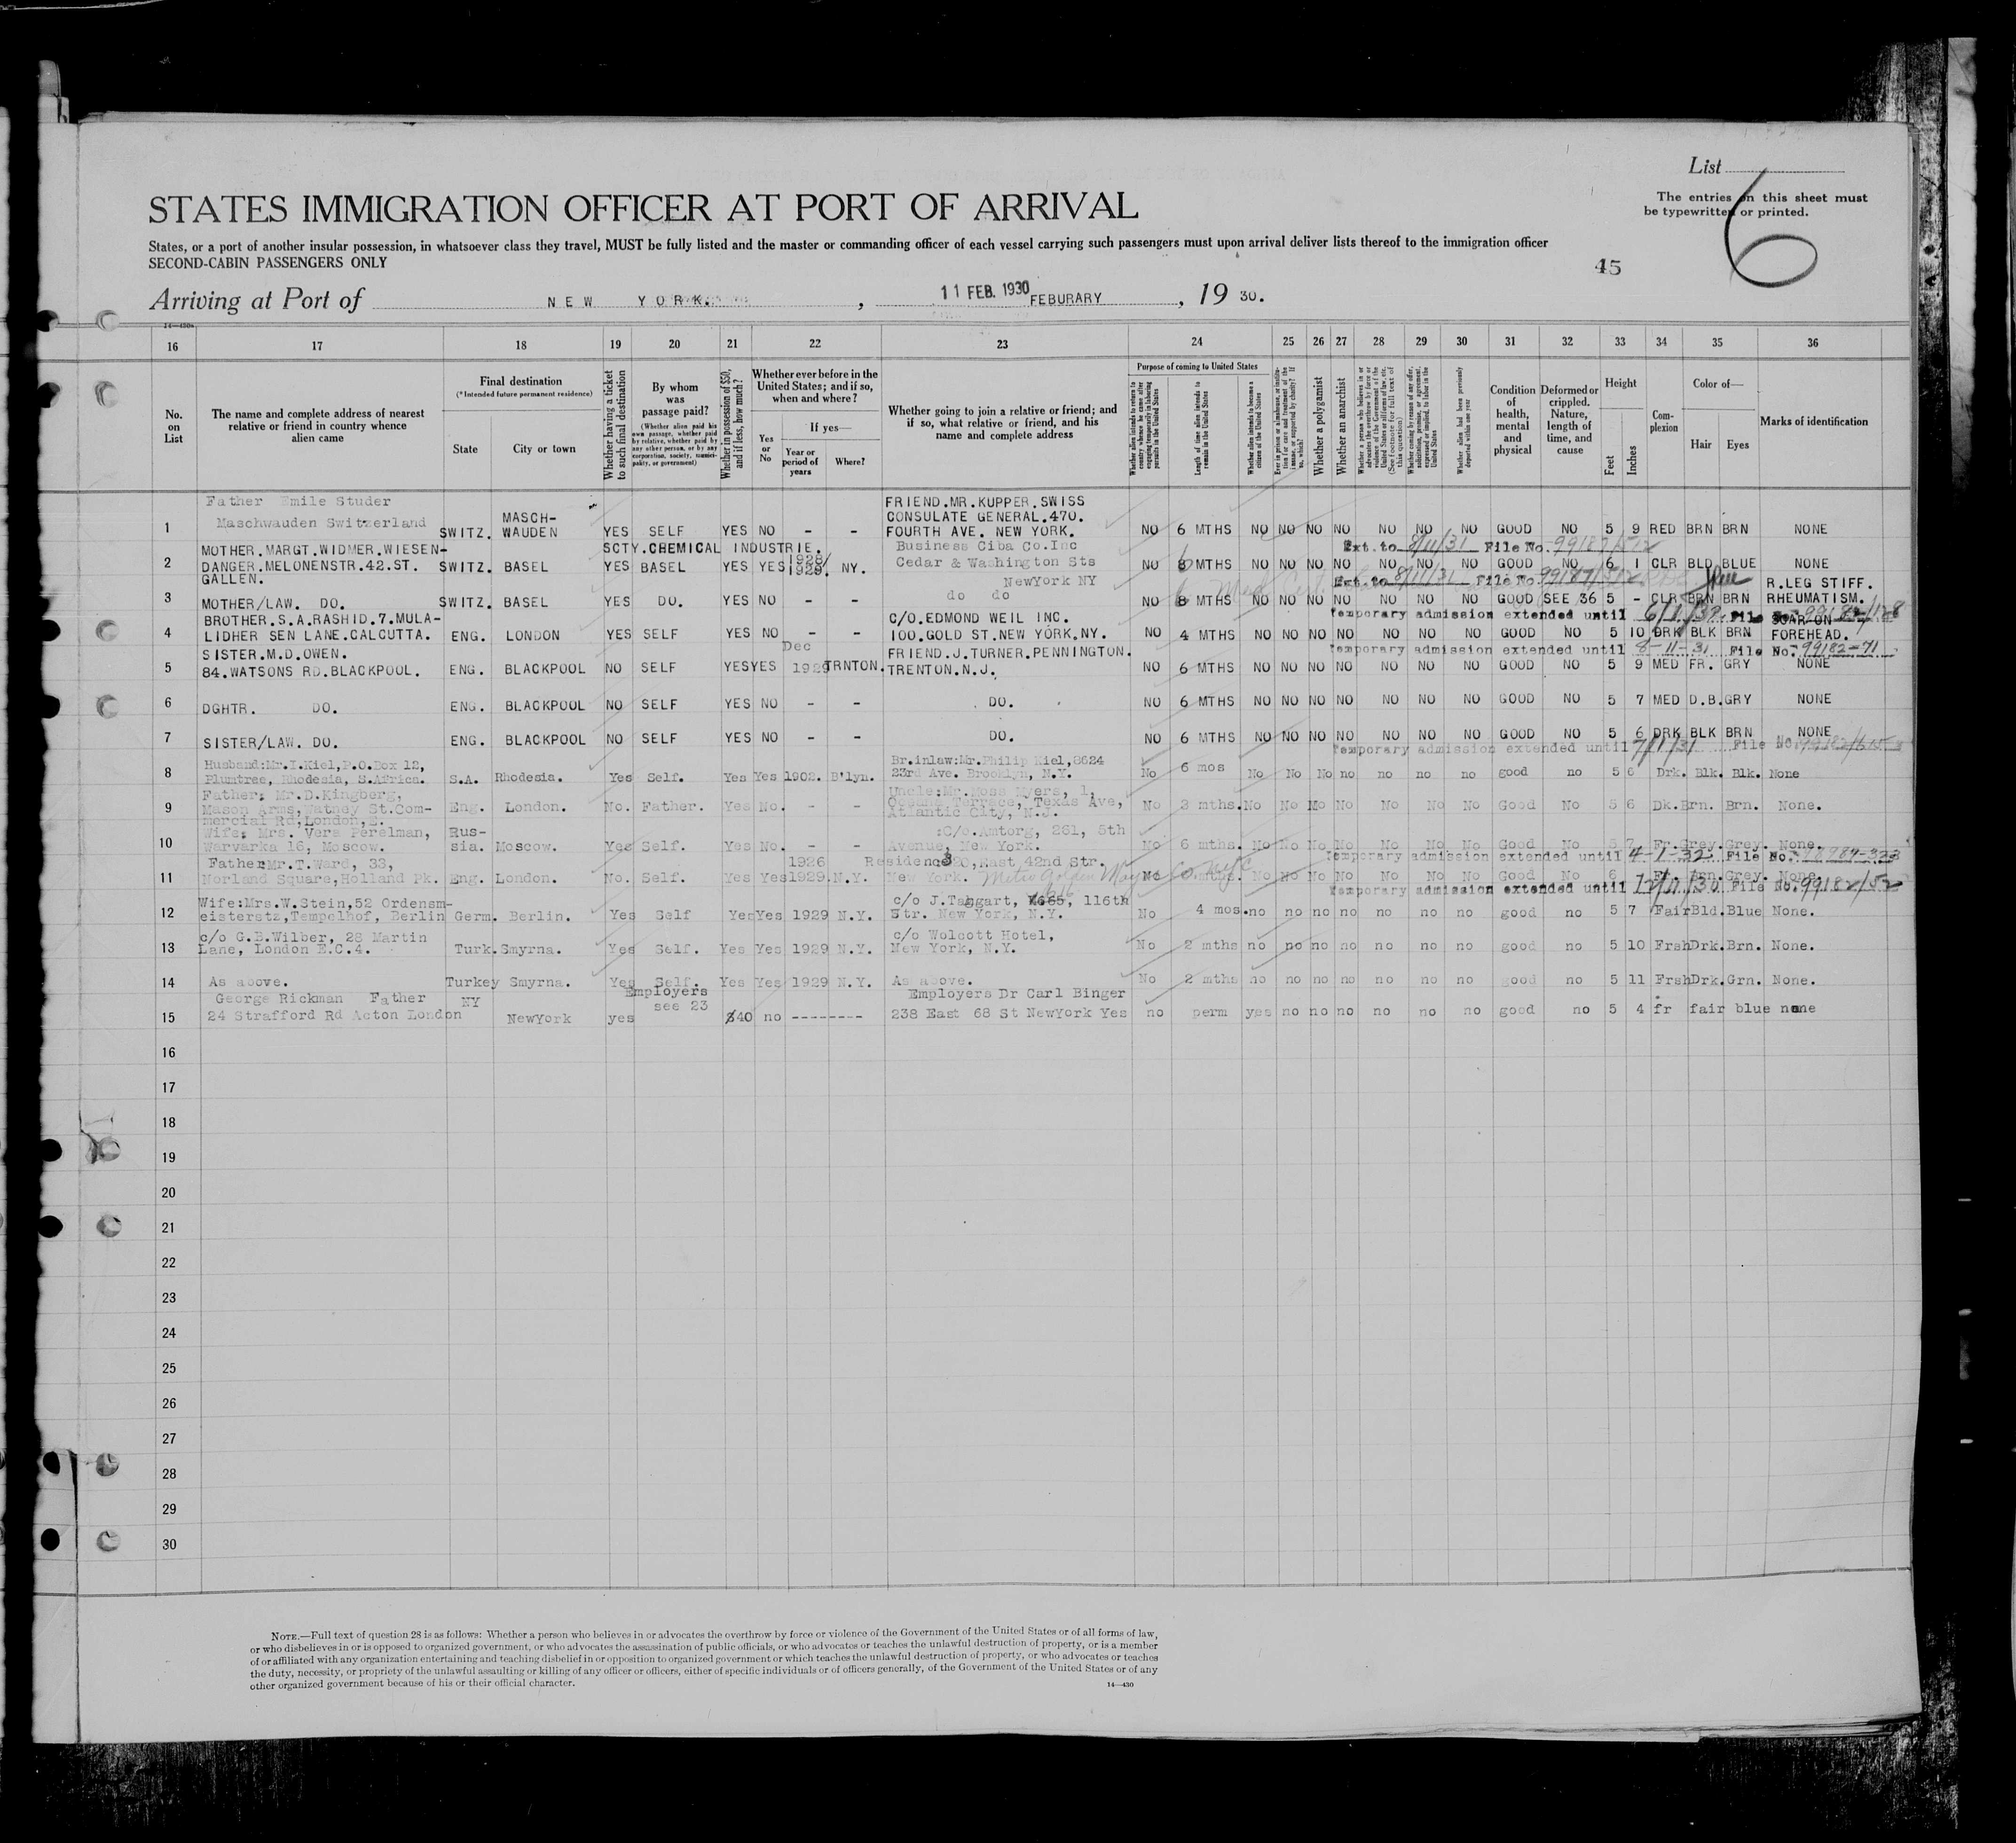 List
6
The entries on this sheet must
be typewritten or printed.
STATES IMMIGRATION OFFICER AT PORT OF ARRIVAL
States, or a port of another insular possession, in whatsoever class they travel, MUST be fully listed and the master or commanding officer of each vessel carrying such passengers must upon arrival deliver lists thereof to the immigration officer
SECOND-CABIN PASSENGERS ONLY
45
Arriving at Port of NEW YORK. , 11 FEB. 1930 FEBURARY , 19 30.
16 17 18 19 20 21 22 23 24 25 26 27 28 29 30 31 32 33 34 35 36
No. on List
The name and complete address of nearest relative or friend in country whence alien came
Final destination
(*Intended future permanent residence)
State City or town
Whether having a ticket to such final destination
By whom was passage paid?
(Whether alien paid his own passage, whether paid by relative, whether paid by any other person, or by any corporation, society, municipality, or government)
Whether in possession of $50, and if less, how much?
Whether ever before in the United States; and if so, when and where?
Yes or No
If yes—
Year or period of years
Where?
Whether going to join a relative or friend; and if so, what relative or friend, and his name and complete address
Purpose of coming to United States
Whether alien intends to return to country whence he came after engaging temporarily in laboring pursuits in the United States
Length of time alien intends to remain in the United States
Whether alien intends to become a citizen of the United States
Whether a polygamist
Whether an anarchist
Whether alien had been previously deported within one year
Condition of health, mental and physical
Deformed or crippled. Nature, length of time, and cause
Height
Feet Inches
Complexion
Color of—
Hair Eyes
Marks of identification
Father Emile Studer
Maschwauden Switzerland
FRIEND.MR.KUPPER.SWISS
CONSULATE GENERAL.470.
1 SWITZ. MASCH-WAUDEN YES SELF YES NO - - FOURTH AVE. NEW YORK. NO 6 MTHS NO NO NO NO NO NO NO GOOD NO 5 9 RED BRN BRN NONE
Ext. to 8/11/31 File No. 99187/512
MOTHER.MARGT.WIDMER.WIESEN-
SCTY.CHEMICAL INDUSTRIE.
Business Ciba Co.Inc
2 DANGER.MELONENSTR.42.ST. SWITZ. BASEL YES BASEL YES YES 1928/1929. NY. Cedar & Washington Sts NO 8 MTHS NO NO NO NO NO NO NO GOOD NO 6 1 CLR BLD BLUE NONE
GALLEN.
NewYork NY
Ext. to 8/11/31 File No. 99187/512
R.LEG STIFF.
3 MOTHER/LAW. DO. SWITZ. BASEL YES DO. YES NO - - do do NO 8 MTHS NO NO NO NO NO NO NO GOOD SEE 36 5 - CLR BRN BRN RHEUMATISM.
Temporary admission extended until 6/1/32. File No.
BROTHER.S.A.RASHID.7.MULA-
C/O.EDMOND WEIL INC.
SCAR ON
4 LIDHER SEN LANE.CALCUTTA. ENG. LONDON YES SELF YES NO - - 100.GOLD ST.NEW YORK.NY. NO 4 MTHS NO NO NO NO NO NO NO GOOD NO 5 10 DRK BLK BRN FOREHEAD.
Temporary admission extended until 8-11-31 File No. 99182-71
SISTER.M.D.OWEN.
Dec
FRIEND.J.TURNER.PENNINGTON.
5 84.WATSONS RD.BLACKPOOL. ENG. BLACKPOOL NO SELF YES YES 1929 TRNTON. TRENTON.N.J. NO 6 MTHS NO NO NO NO NO NO NO GOOD NO 5 9 MED FR. GRY NONE
6 DGHTR. DO. ENG. BLACKPOOL NO SELF YES NO - - DO. NO 6 MTHS NO NO NO NO NO NO NO GOOD NO 5 7 MED D.B. GRY NONE
7 SISTER/LAW. DO. ENG. BLACKPOOL NO SELF YES NO - - DO. NO 6 MTHS NO NO NO NO NO NO NO GOOD NO 5 6 DRK BLK BRN NONE
Temporary admission extended until 7/1/31 File No.
Husband:Mr.I.Kiel,P.O.Box 12,
Br.inlaw:Mr.Philip Kiel,8624
8 Plumtree, Rhodesia, S.Africa. S.A. Rhodesia. Yes Self. Yes Yes 1902. B'lyn. 23rd Ave. Brooklyn, N.Y. No 6 mos No No No no no no no good no 5 6 Drk. Blk. Blk. None
Father: Mr.D.Kingberg,
Uncle:Mr.Moss Myers, 1,
9 Mason Arms,Watney St.Com- Eng. London. No. Father. Yes No. - - Oceana Terrace, Texas Ave, No 3 mths. No No No No No No No Good No 5 6 Dk. Brn. Brn. None.
mercial Rd,London,E.
Atlantic City, N.J.
Wife: Mrs. Vera Perelman,
:C/o.Amtorg, 261, 5th
10 Warvarka 16, Moscow. Russia. Moscow. Yes Self. Yes No. - - Avenue, New York. No 6 mths. No No No No No No No Good No 5 7 Fr. Grey. Grey. None.
Temporary admission extended until 4-1-32. File No. 98984-323
Father:Mr.T.Ward, 33,
1926
Residence 320,East 42nd Str.
11 Norland Square,Holland Pk. Eng. London. No. Self. Yes Yes 1929. N.Y. New York. Metro Goldwyn Mayer Co NYC No mths. No No No No No No No Good No 6 Fr. Brn. Grey. None.
Temporary admission extended until 12/11/30 File No. 99182/52
Wife:Mrs.W.Stein,52 Ordensm-
c/o J.Taggart, 116th
12 eisterstz,Tempelhof, Berlin Germ. Berlin. Yes Self Yes Yes 1929 N.Y. Str. New York, N.Y. No 4 mos. no no no no no no no good no 5 7 Fair Bld. Blue None.
c/o G.B.Wilber, 28 Martin
c/o Wolcott Hotel,
13 Lane, London E.C.4. Turk. Smyrna. Yes Self. Yes Yes 1929 N.Y. New York, N.Y. No 2 mths no no no no no no no good no 5 10 Frsh Drk. Brn. None.
14 As above. Turkey Smyrna. Yes Self. Yes Yes 1929 N.Y. As above. No 2 mths no no no no no no no good no 5 11 Frsh Drk. Grn. None.
George Rickman Father
NY
Employers
see 23
Employers Dr Carl Binger
15 24 Strafford Rd Acton London NewYork yes $40 no -------- 238 East 68 St NewYork Yes no perm yes no no no no no no good no 5 4 fr fair blue none
16
17
18
19
20
21
22
23
24
25
26
27
28
29
30
NOTE.—Full text of question 28 is as follows: Whether a person who believes in or advocates the overthrow by force or violence of the Government of the United States or of all forms of law,
or who disbelieves in or is opposed to organized government, or who advocates the assassination of public officials, or who advocates or teaches the unlawful destruction of property, or is a member
of or affiliated with any organization entertaining and teaching disbelief in or opposition to organized government or which teaches the unlawful destruction of property, or who advocates or teaches
the duty, necessity, or propriety of the unlawful assaulting or killing of any officer or officers, either of specific individuals or of officers generally, of the Government of the United States or of any
other organized government because of his or their official character.
14—430